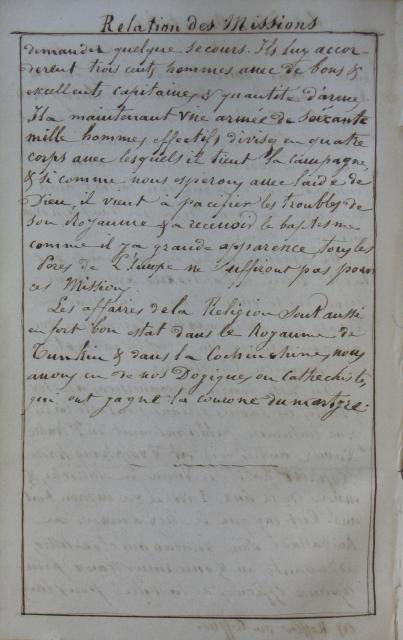 Relation des Missions
demander quelque secours. Ils luy accor-
derent trois cents hommes avec de bons &
excellents capitaines, & quantité d'armes
Il a maintenant vne armée de soixante
mille hommes effectifs divisés en quatre
corps avec lesquels il tient la campagne
& si comme nous esperons avec l'aide de
Dieu, il vient à pacifier les troubles de
son Royaume & a recevoir le baptesme
comme il y a grande apparence, tous les
Peres de L'Europe ne suffiront pas pour
ces Missions.
Les affaires de la Religion sont aussi
en fort bon estat dans le Royaume de
Tunkin & dans la Cochinchine, nous
avons eu de nos Dogiques ou Cathechistes,
qui ont gagné la courone du martyre.